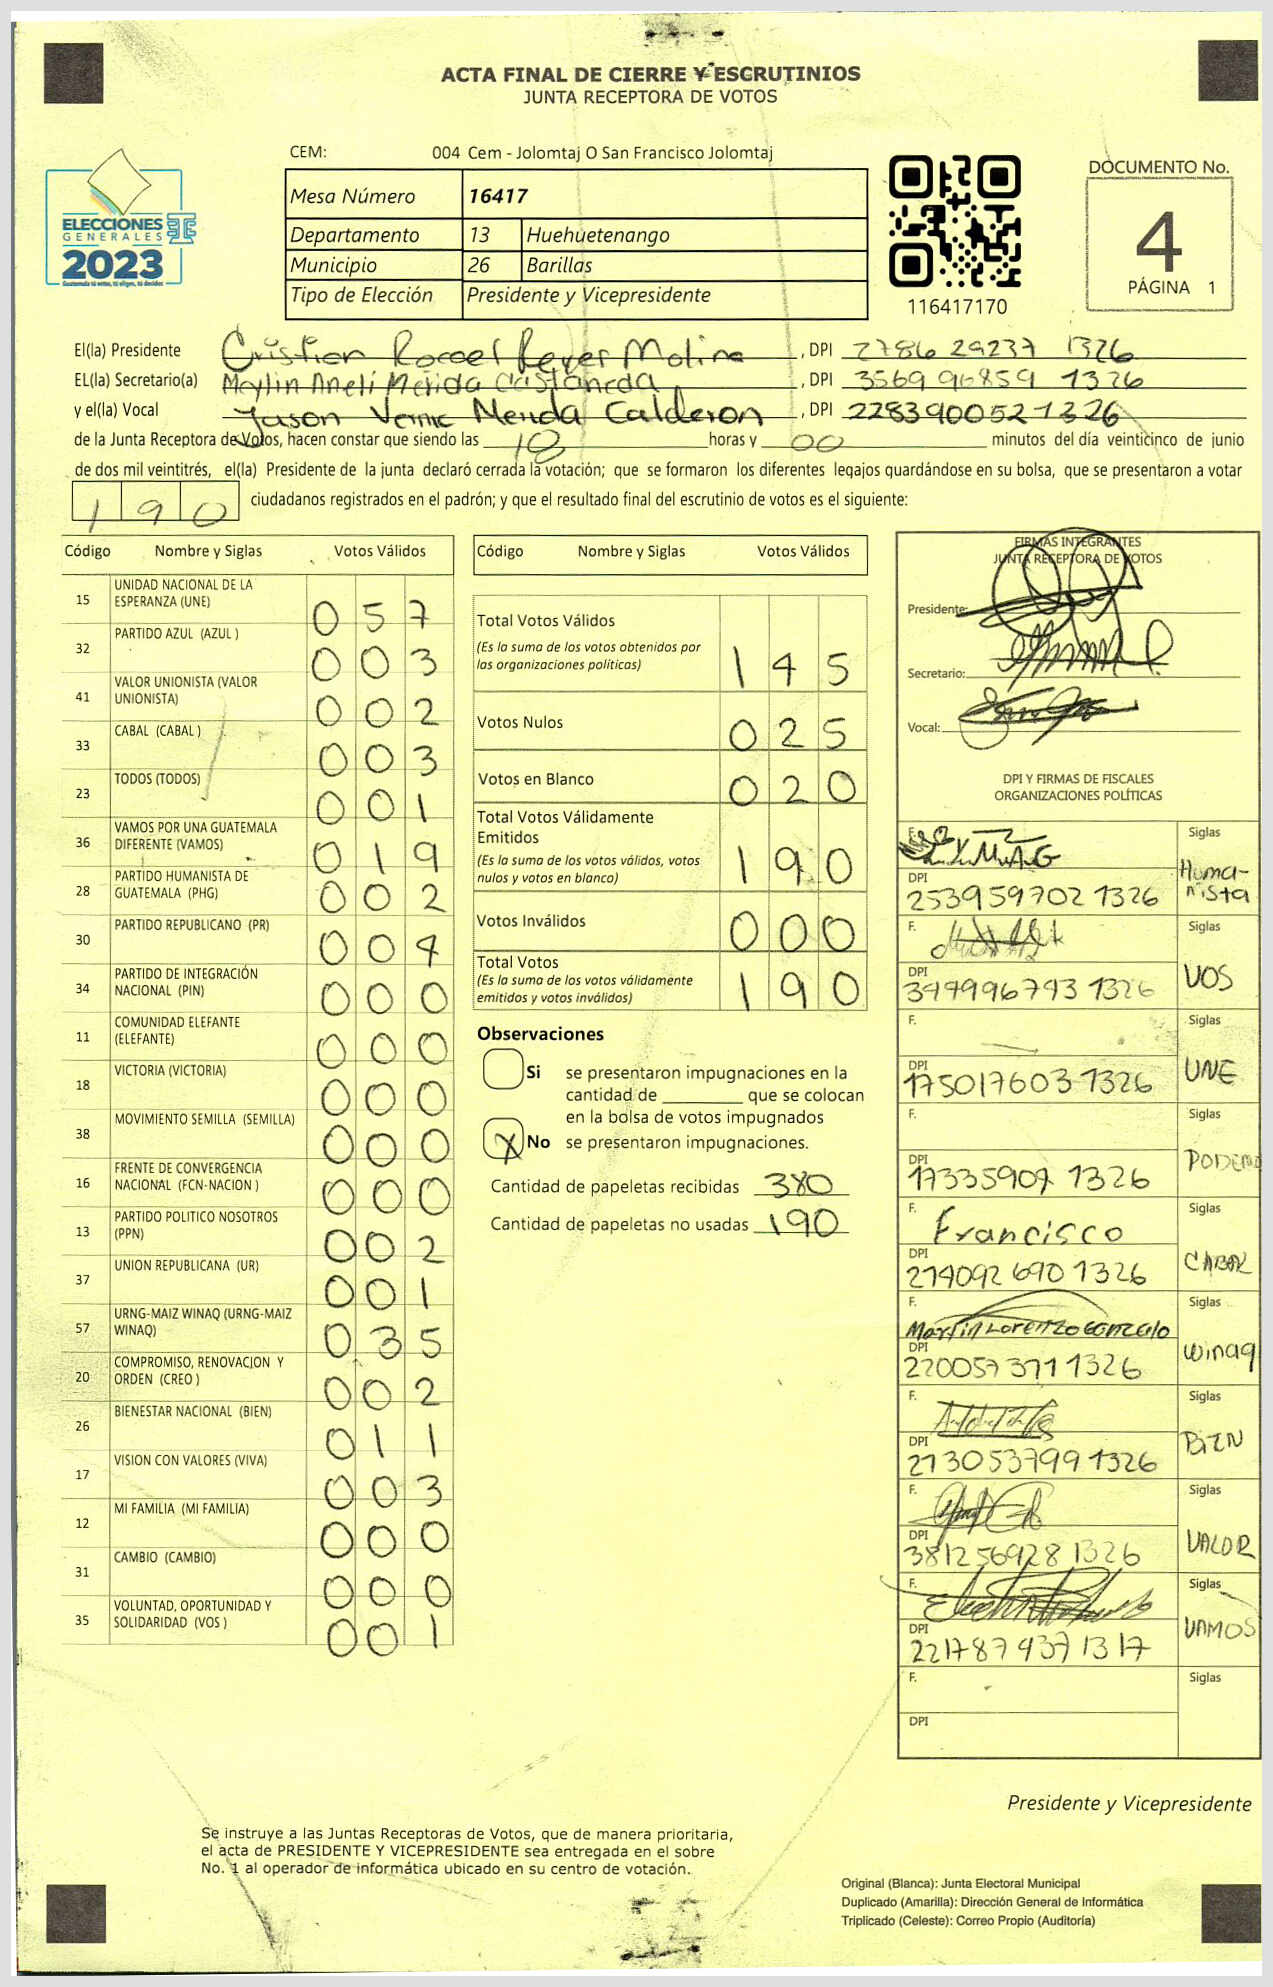 ACTA FINAL DE CIERRE Y ESCRUTINIOS
JUNTA RECEPTORA DE VOTOS
CEM: 004 Cem - Jolomtaj O San Francisco Jolomtaj
ELECCIONES
GENERALES
2023
Guatemala tú votas, tú eliges, tú decides
Mesa Número 16417
Departamento 13 Huehuetenango
Municipio 26 Barillas
Tipo de Elección Presidente y Vicepresidente
116417170
DOCUMENTO No.
4
PÁGINA 1
El(la) Presidente Cristian Rocael Reyes Molina, DPI 2786 29237 1326
EL(la) Secretario(a) Meylin Aneli Merida Castañeda, DPI 3569 96859 1326
y el(la) Vocal Merida Calderon, DPI 2283900521326
de la Junta Receptora de Votos, hacen constar que siendo las 18 horas y 00 minutos del día veinticinco de junio
de dos mil veintitrés, el(la) Presidente de la junta declaró cerrada la votación; que se formaron los diferentes legajos quardándose en su bolsa, que se presentaron a votar
190 ciudadanos registrados en el padrón; y que el resultado final del escrutinio de votos es el siguiente:
Código Nombre y Siglas Votos Válidos
15 UNIDAD NACIONAL DE LA ESPERANZA (UNE) 057
32 PARTIDO AZUL (AZUL ) 003
41 VALOR UNIONISTA (VALOR UNIONISTA) 002
33 CABAL (CABAL ) 003
23 TODOS (TODOS) 001
36 VAMOS POR UNA GUATEMALA DIFERENTE (VAMOS) 019
28 PARTIDO HUMANISTA DE GUATEMALA (PHG) 002
30 PARTIDO REPUBLICANO (PR) 004
34 PARTIDO DE INTEGRACIÓN NACIONAL (PIN) 000
11 COMUNIDAD ELEFANTE (ELEFANTE) 000
18 VICTORIA (VICTORIA) 000
38 MOVIMIENTO SEMILLA (SEMILLA) 000
16 FRENTE DE CONVERGENCIA NACIONAL (FCN-NACION ) 000
13 PARTIDO POLITICO NOSOTROS (PPN) 002
37 UNION REPUBLICANA (UR) 001
57 URNG-MAIZ WINAQ (URNG-MAIZ WINAQ) 035
20 COMPROMISO, RENOVACION Y ORDEN (CREO ) 002
26 BIENESTAR NACIONAL (BIEN) 011
17 VISION CON VALORES (VIVA) 003
12 MI FAMILIA (MI FAMILIA) 000
31 CAMBIO (CAMBIO) 000
35 VOLUNTAD, OPORTUNIDAD Y SOLIDARIDAD (VOS ) 001
Código Nombre y Siglas Votos Válidos
Total Votos Válidos 145
(Es la suma de los votos obtenidos por
las organizaciones políticas)
Votos Nulos 025
Votos en Blanco 020
Total Votos Válidamente
Emitidos 190
(Es la suma de los votos válidos, votos
nulos y votos en blanco)
Votos Inválidos 000
Total Votos 190
(Es la suma de los votos válidamente
emitidos y votos inválidos)
Observaciones
Si se presentaron impugnaciones en la
cantidad de ________ que se colocan
en la bolsa de votos impugnados
X No se presentaron impugnaciones.
Cantidad de papeletas recibidas 380
Cantidad de papeletas no usadas 190
FIRMAS INTEGRANTES
JUNTA RECEPTORA DE VOTOS
Presidente:
Secretario:
Vocal:
DPI Y FIRMAS DE FISCALES
ORGANIZACIONES POLÍTICAS
F. Siglas Humanista
DPI 253959702 1326
F. Siglas VOS
DPI 1326
F. Siglas UNE
DPI 175017603 1326
F. Siglas
DPI 17335907 1326
F. Francisco Siglas CABAL
DPI 214092 690 1326
F. Martin Lorenzo Gonzalo Siglas winaq
DPI 220057 371 1326
F. Siglas BIEN
DPI 213053799 1326
F. Siglas VALOR
DPI 381256928 1326
F. Siglas VAMOS
DPI 221787 937 1317
F. Siglas
DPI
Presidente y Vicepresidente
Se instruye a las Juntas Receptoras de Votos, que de manera prioritaria,
el acta de PRESIDENTE Y VICEPRESIDENTE sea entregada en el sobre
No. 1 al operador de informática ubicado en su centro de votación.
Original (Blanca): Junta Electoral Municipal
Duplicado (Amarilla): Dirección General de Informática
Triplicado (Celeste): Correo Propio (Auditoría)